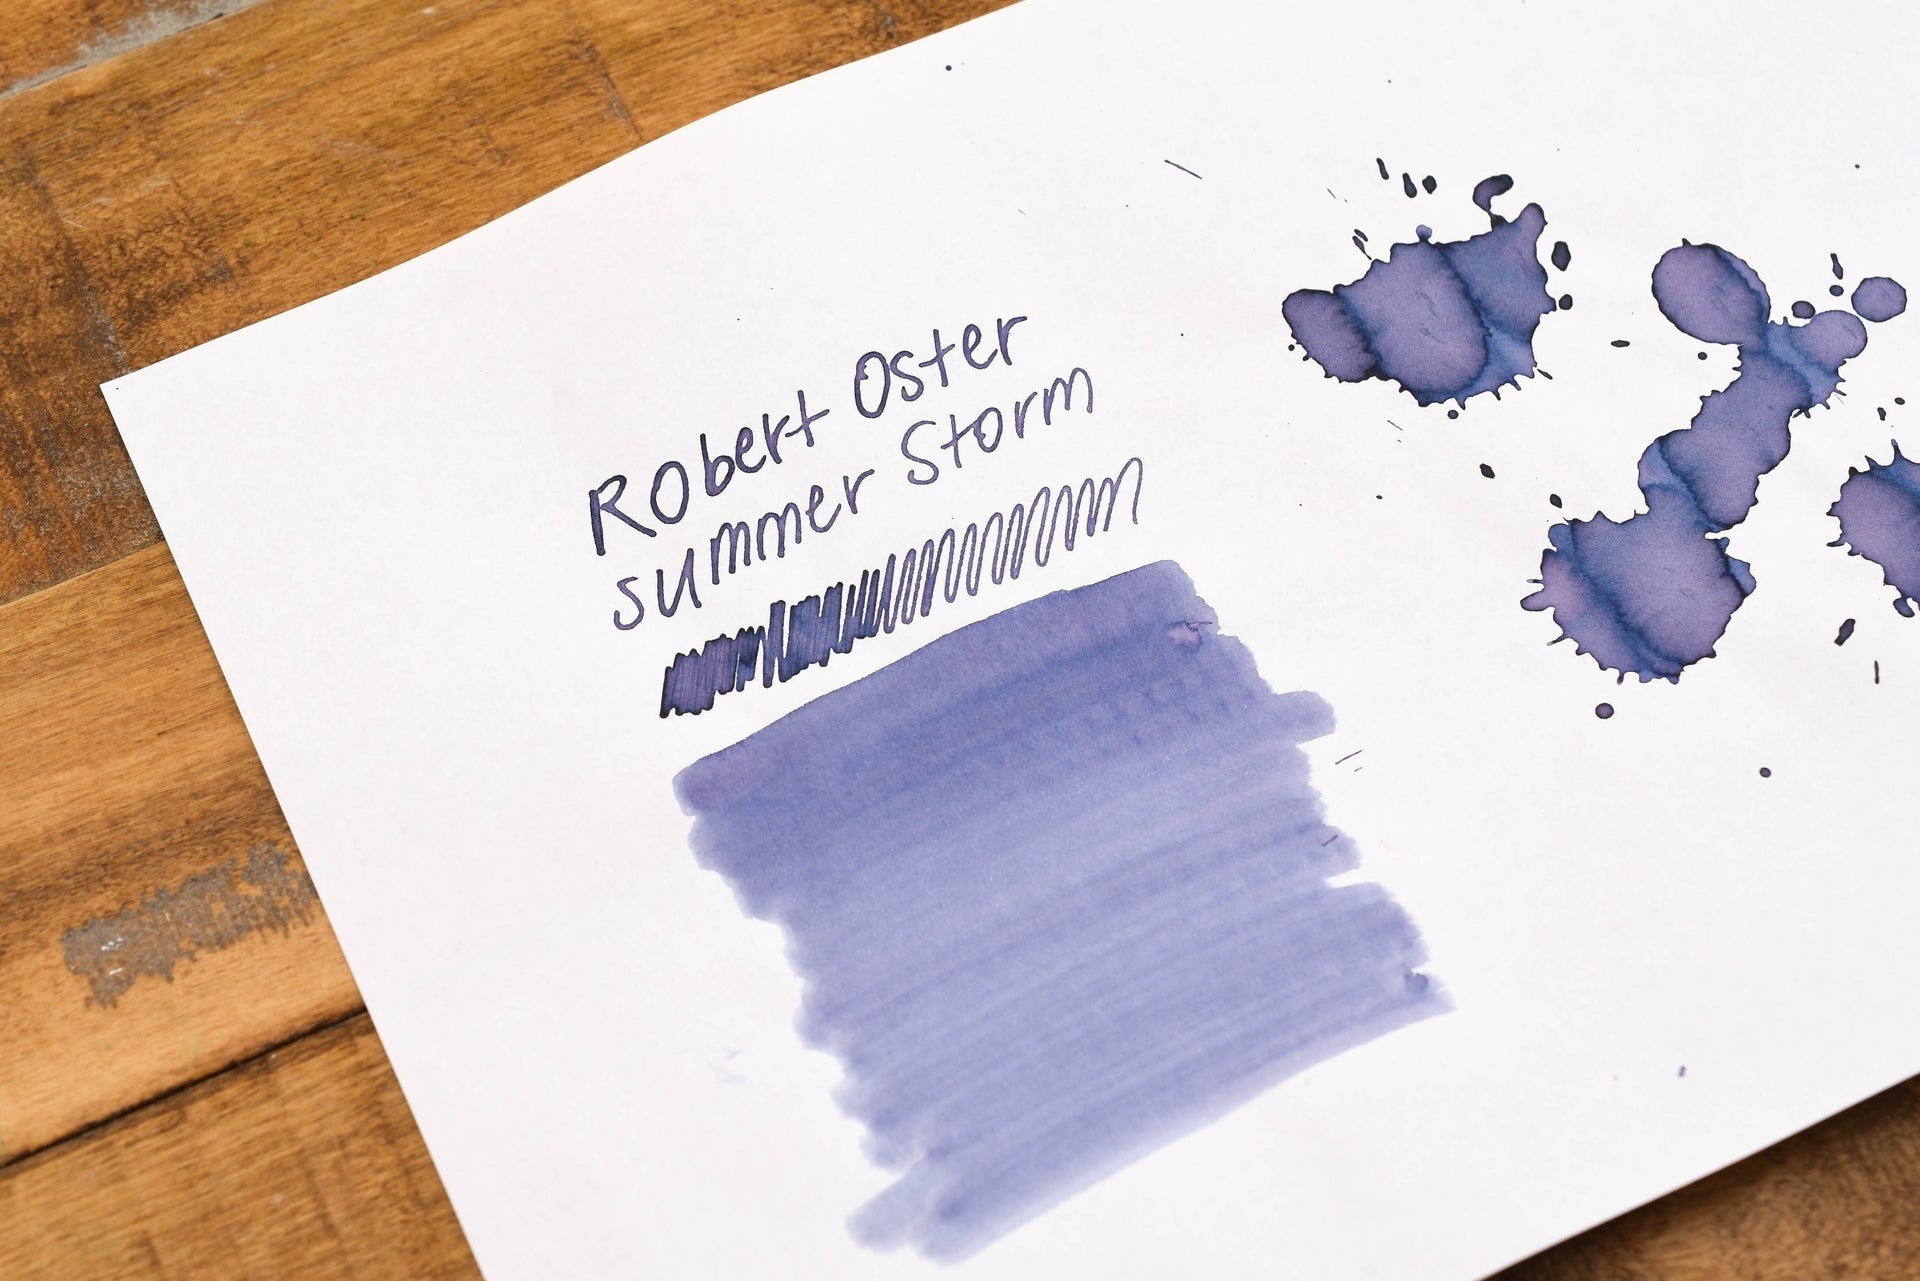 Robert Oster
summer Storm